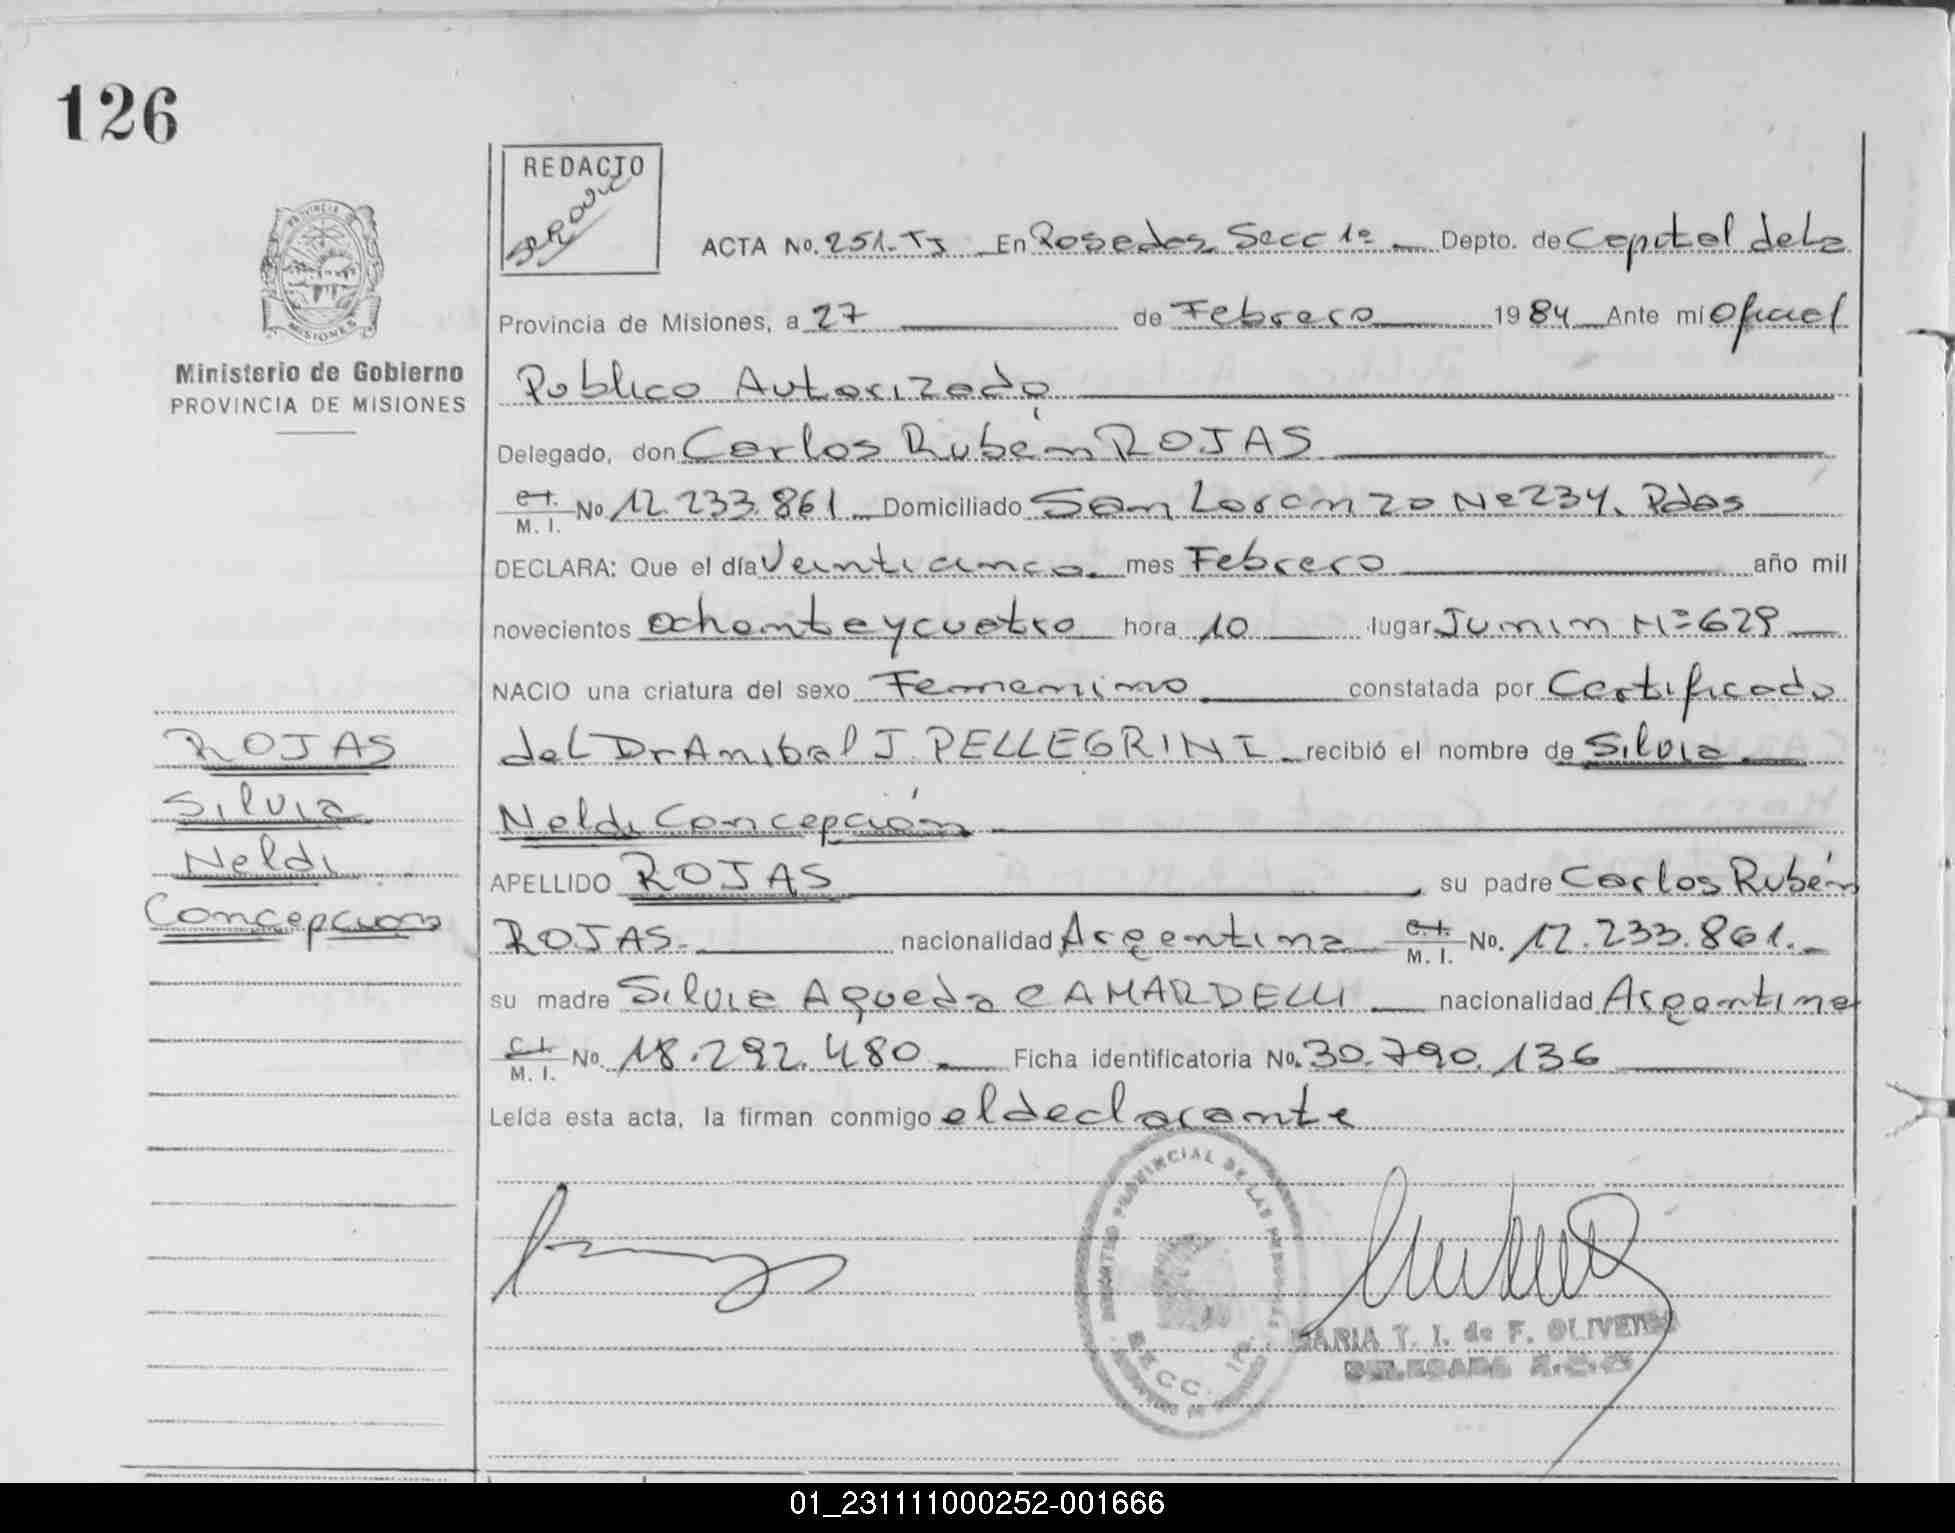 126
REDACTO
ACTA No. 251-TJ En Posadas Secc 1º Depto. de Capital de La
Provincia de Misiones, a 27 de Febrero 1984 Ante mi Oficial
Ministerio de Gobierno
PROVINCIA DE MISIONES
Publico Autorizado
Delegado, don Carlos Rubén ROJAS
C.I. M. I. No 12.233.861 Domiciliado San Lorenzo Nº 234. Pdas
DECLARA: Que el día Veinticinco mes Febrero año mil
novecientos ochenta y cuatro hora 10 lugar Junin Nº 629
NACIO una criatura del sexo Femenino constatada por Certificado
del Dr Anibal J. PELLEGRINI recibió el nombre de Silvia
Neldi Concepción
APELLIDO ROJAS, su padre Carlos Rubén
ROJAS nacionalidad Argentina C.I. M. I. No. 12.233.861.
su madre Silvia Agueda CAMARDELLI nacionalidad Argentina
C.I. M. I. No. 18.292.480 Ficha identificatoria No. 30.790.136
Leída esta acta, la firman conmigo el declarante
ROJAS
Silvia
Neldi
Concepcion
PROVINCIA DE
MISIONES
REGISTRO PROVINCIAL DE LAS PERSONAS
MARIA T. I. de F. OLIVEIRA
DELEGADA
01_231111000252-001666